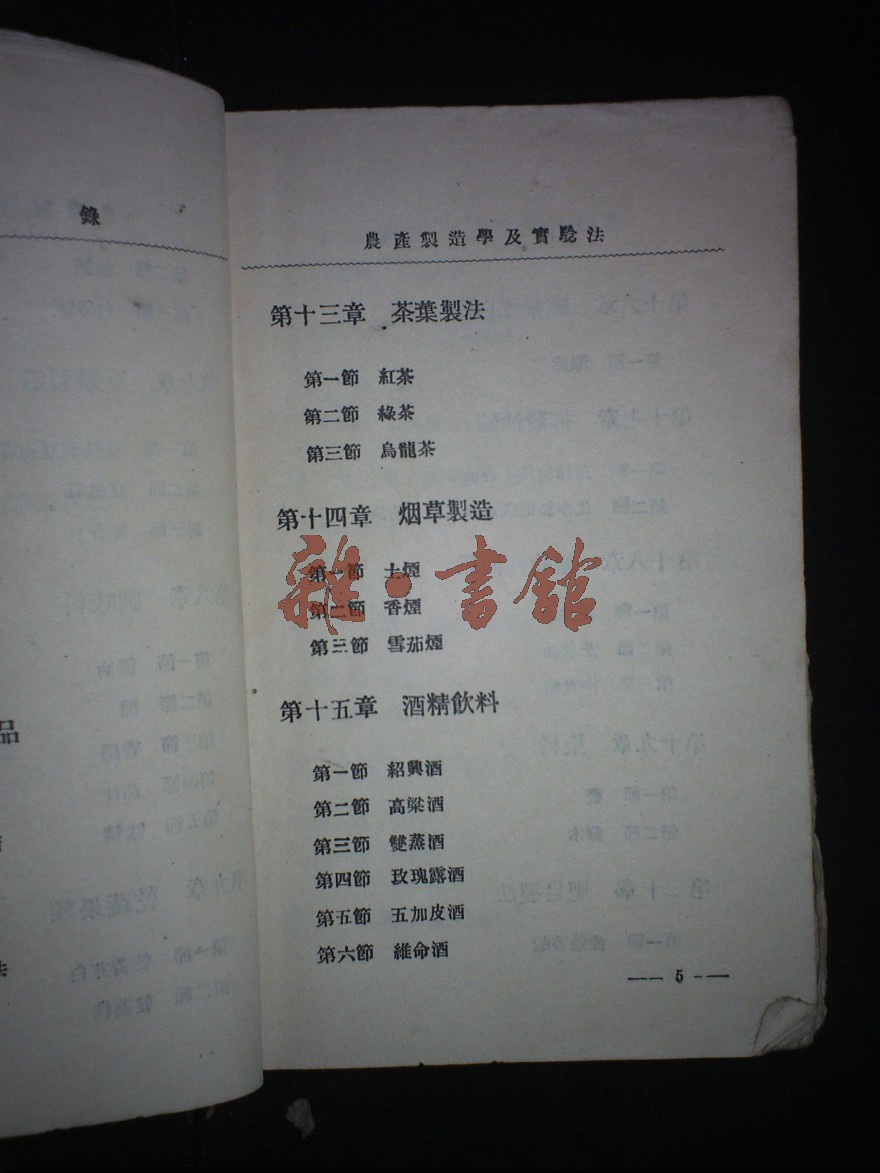 錄
品
農產製造學及實驗法
第十三章 茶葉製法
第一節 紅茶
第二節 綠茶
第三節 烏龍茶
第十四章 烟草製造
第一節 土煙
第二節 香煙
第三節 雪茄煙
雜·書館
第十五章 酒精飲料
第一節 紹興酒
第二節 高粱酒
第三節 雙蒸酒
第四節 玫瑰露酒
第五節 五加皮酒
第六節 維命酒
— 5 —